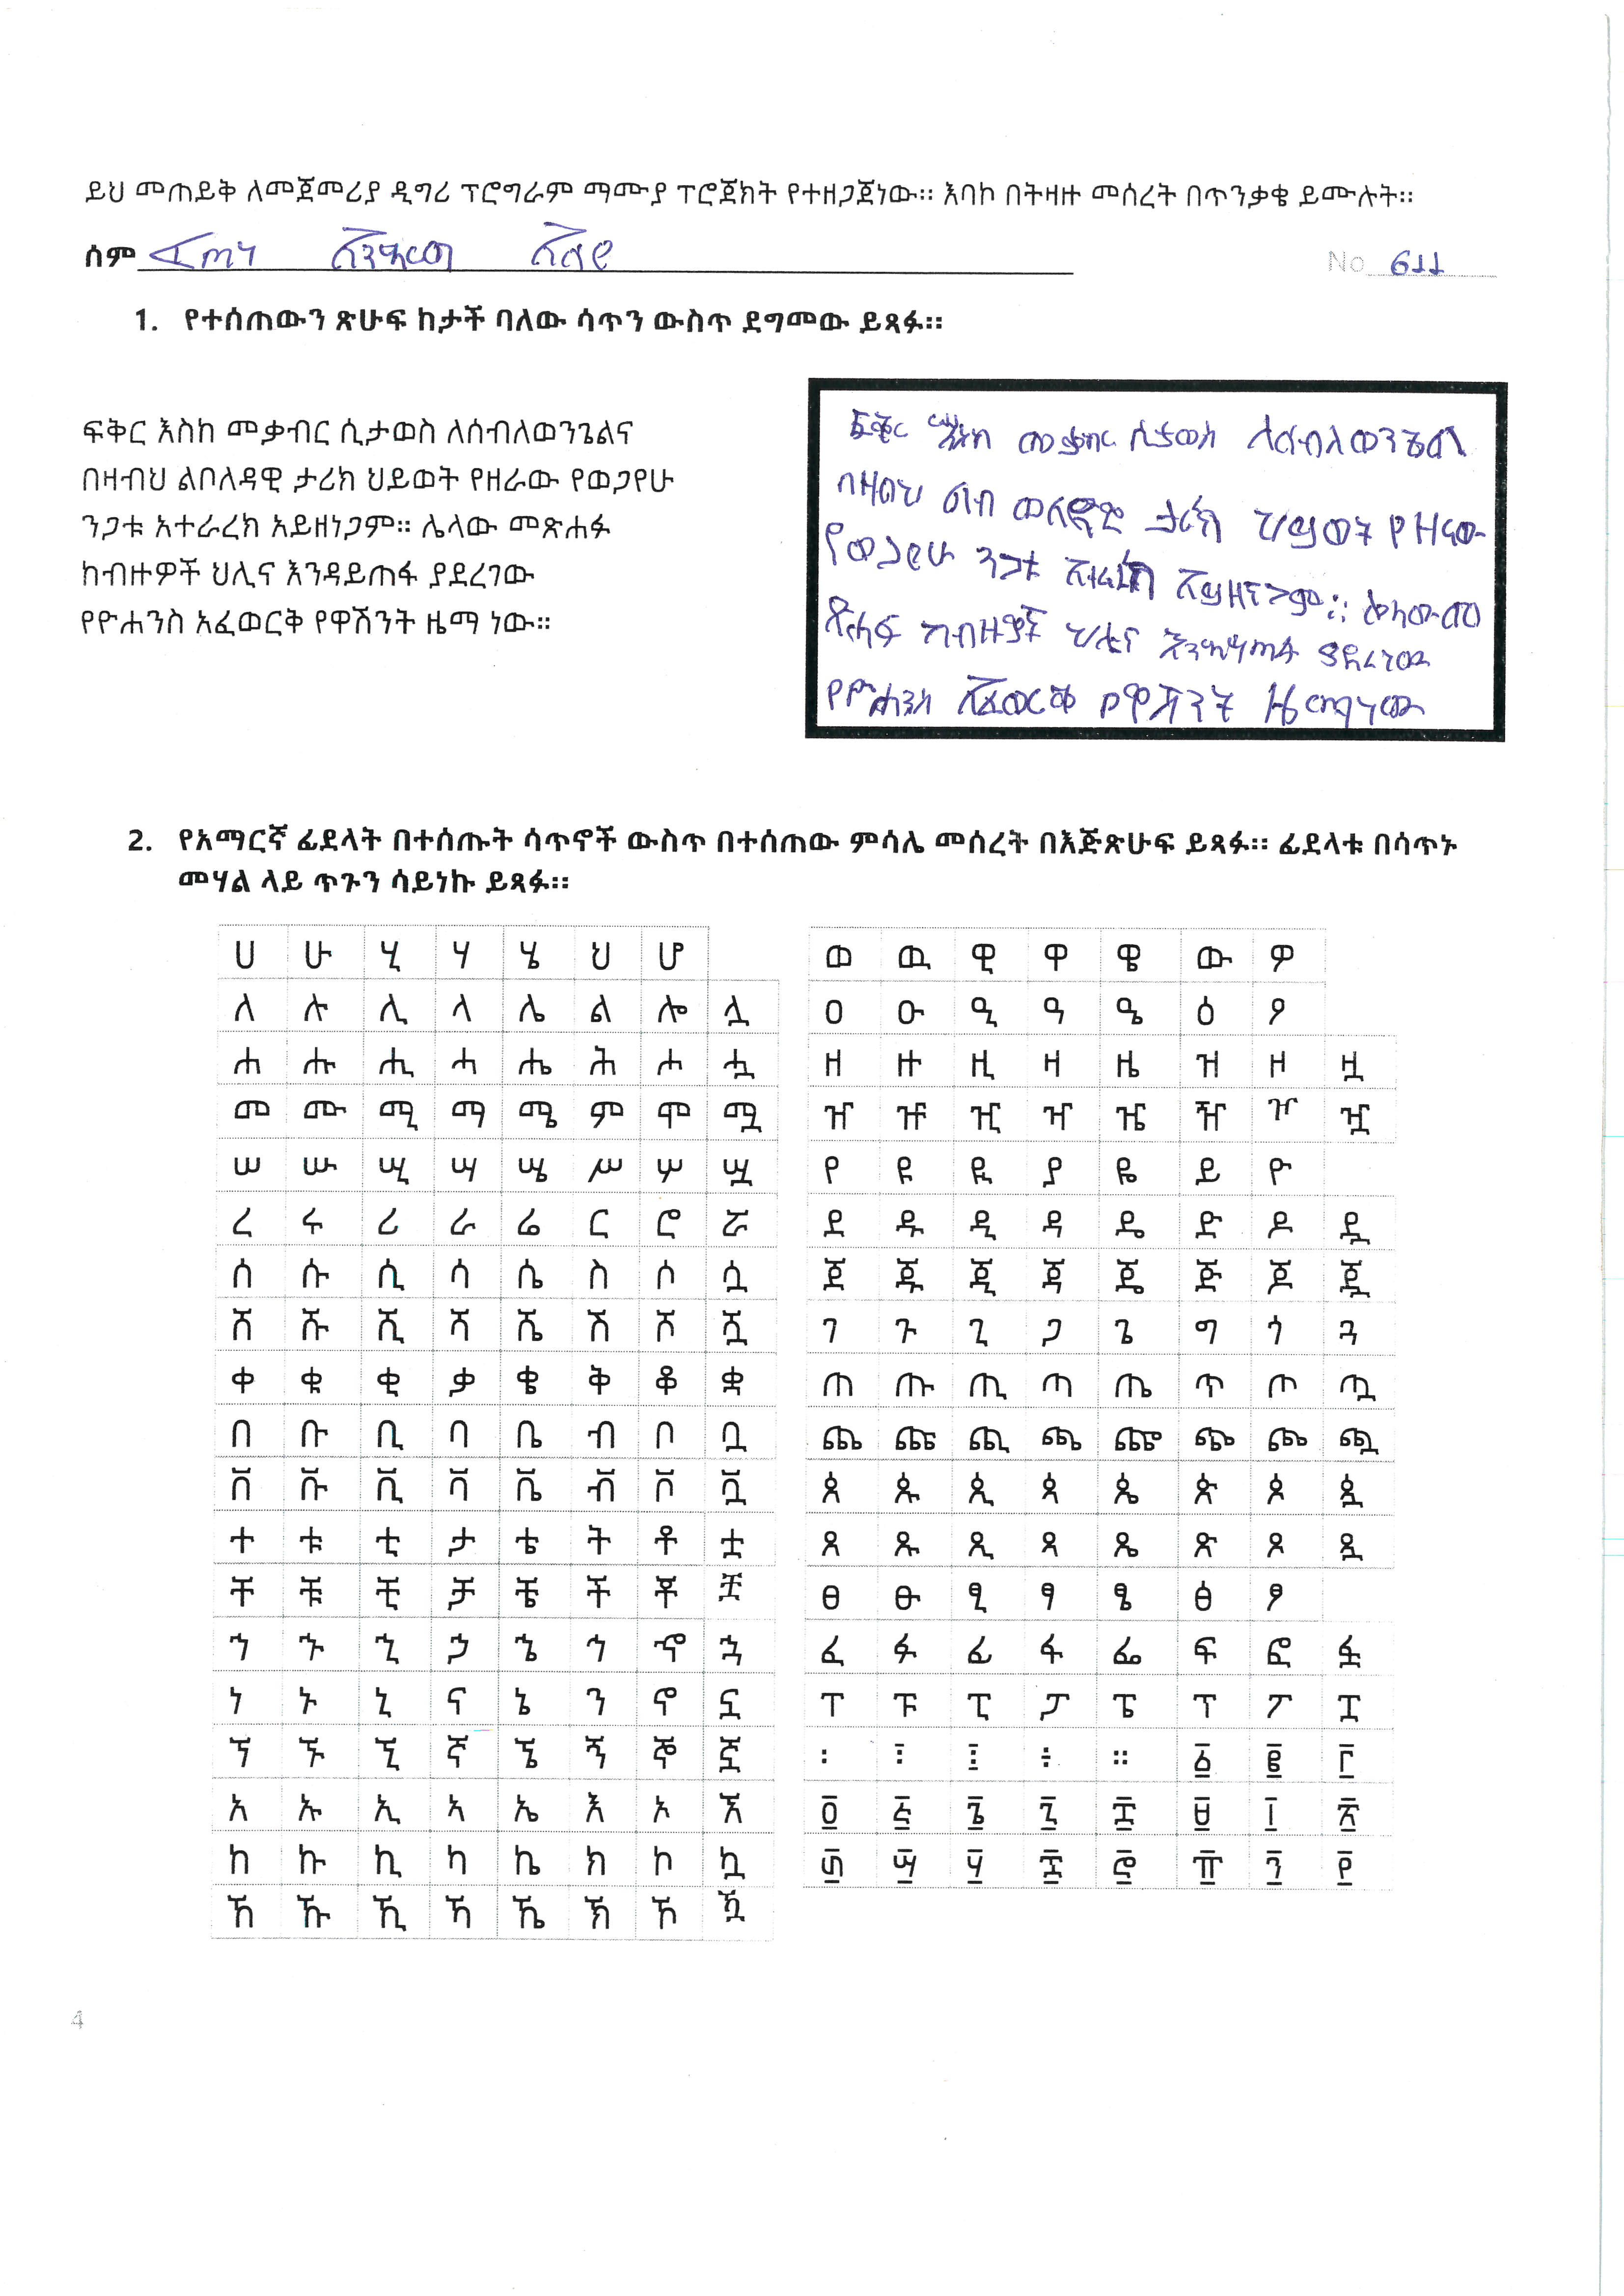 ይህ መጠይቅ ለመጀመሪያ ዲግሪ ፕሮግራም ማሙያ ፕሮጀክት የተዘጋጀነው። እባኮ በትዛዙ መሰረት በጥንቃቄ ይሙሉት።
ሰም
No 611
1. የተሰጠውን ጽሁፍ ከታች ባለው ሳጥን ውስጥ ደግመው ይጻፉ።
ፍቅር እስከ መቃብር ሲታወስ ለሰብለወንጌልና
በዛብህ ልቦለዳዊ ታሪክ ህይወት የዘራው የወጋየሁ
ንጋቱ አተራረክ አይዘነጋም። ሌላው መጽሐፉ
ከብዙዎች ህሊና እንዳይጠፋ ያደረገው
የዮሐንስ አፈወርቅ የዋሽንት ዜማ ነው።
ፍቅር እስከ መቃብር ሲታወስ ለሰብለወንጌል
በዛብህ ልብ ወለዳድ ታሪክ ህይወት የዘራው
የወጋየሁ ንጋቱ አይዘነጋም። ሌላው መ
ጽሐፍ ከብዙዎች ህሊና እንዳይጠፋ ያደረገው
የዮሐንስ አፈወርቅ የዋሽንት ዜማ ነው
2. የአማርኛ ፊደላት በተሰጡት ሳጥኖች ውስጥ በተሰጠው ምሳሌ መሰረት በእጅጽሁፍ ይጻፉ። ፊደላቱ በሳጥኑ
መሃል ላይ ጥጉን ሳይነኩ ይጻፉ።
ሀ ሁ ሂ ሃ ሄ ህ ሆ
ለ ሉ ሊ ላ ሌ ል ሎ ሏ
ሐ ሑ ሒ ሓ ሔ ሕ ሖ ሗ
መ ሙ ሚ ማ ሜ ም ሞ ሟ
ሠ ሡ ሢ ሣ ሤ ሥ ሦ ሧ
ረ ሩ ሪ ራ ሬ ር ሮ ሯ
ሰ ሱ ሲ ሳ ሴ ስ ሶ ሷ
ሸ ሹ ሺ ሻ ሼ ሽ ሾ ሿ
ቀ ቁ ቂ ቃ ቄ ቅ ቆ ቋ
በ ቡ ቢ ባ ቤ ብ ቦ ቧ
ቨ ቩ ቪ ቫ ቬ ቭ ቮ ቯ
ተ ቱ ቲ ታ ቴ ት ቶ ቷ
ቸ ቹ ቺ ቻ ቼ ች ቾ ቿ
ኀ ኁ ኂ ኃ ኄ ኅ ኆ ኋ
ነ ኑ ኒ ና ኔ ን ኖ ኗ
ኘ ኙ ኚ ኛ ኜ ኝ ኞ ኟ
አ ኡ ኢ ኣ ኤ እ ኦ ኧ
ከ ኩ ኪ ካ ኬ ክ ኮ ኳ
ኸ ኹ ኺ ኻ ኼ ኽ ኾ ዃ
ወ ዉ ዊ ዋ ዌ ው ዎ
ዐ ዑ ዒ ዓ ዔ ዕ ዖ
ዘ ዙ ዚ ዛ ዜ ዝ ዞ ዟ
ዠ ዡ ዢ ዣ ዤ ዥ ዦ ዧ
የ ዩ ዪ ያ ዬ ይ ዮ
ደ ዱ ዲ ዳ ዴ ድ ዶ ዷ
ጀ ጁ ጂ ጃ ጄ ጅ ጆ ጇ
ገ ጉ ጊ ጋ ጌ ግ ጎ ጓ
ጠ ጡ ጢ ጣ ጤ ጥ ጦ ጧ
ጨ ጩ ጪ ጫ ጬ ጭ ጮ ጯ
ጰ ጱ ጲ ጳ ጴ ጵ ጶ ጷ
ጸ ጹ ጺ ጻ ጼ ጽ ጾ ጿ
ፀ ፁ ፂ ፃ ፄ ፅ ፆ
ፈ ፉ ፊ ፋ ፌ ፍ ፎ ፏ
ፐ ፑ ፒ ፓ ፔ ፕ ፖ ፗ
፡ ፣ ፤ ፥ ። ፩ ፪ ፫
፬ ፭ ፮ ፯ ፰ ፱ ፲ ፳
፴ ፵ ፶ ፷ ፸ ፹ ፺ ፻
4